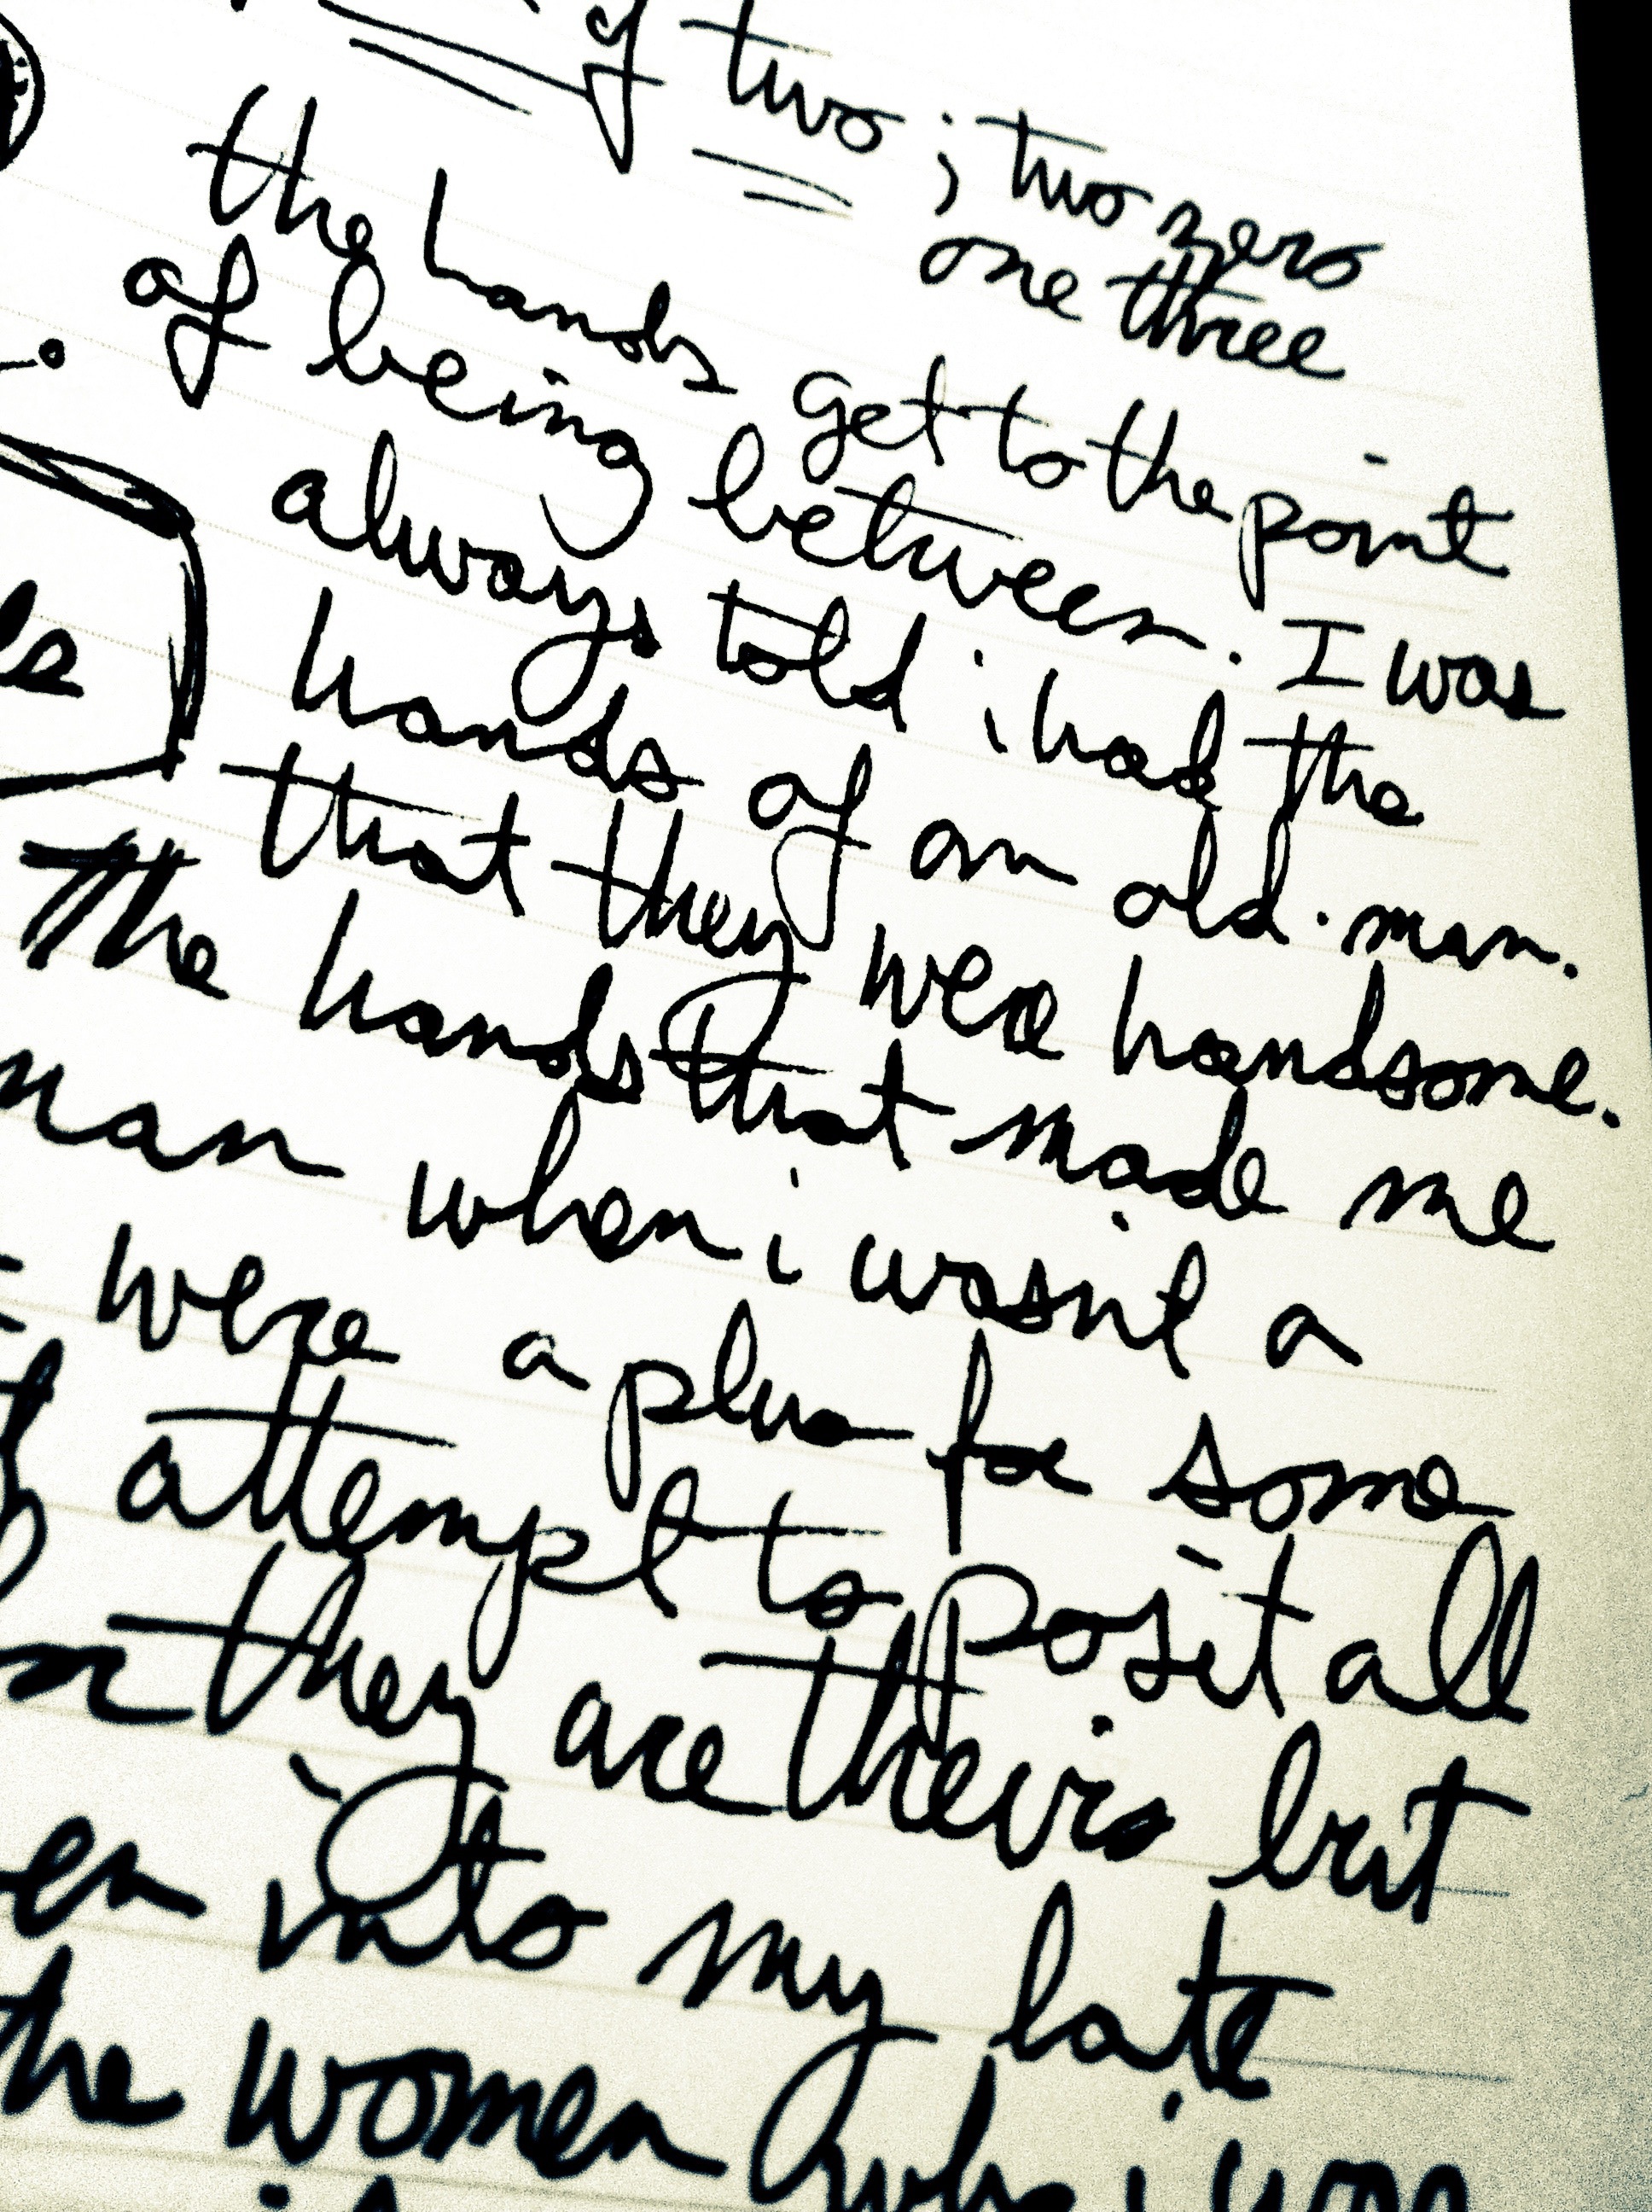 of two ; two zero
one three
the hands get to the point
of being between. I was
always told i had the
hands of an old.man.
that they were handsome.
The hands that made me
man when i wasnt a
were a plus for some
attempt to posit all
they are theirs but
into my late
the women who i was